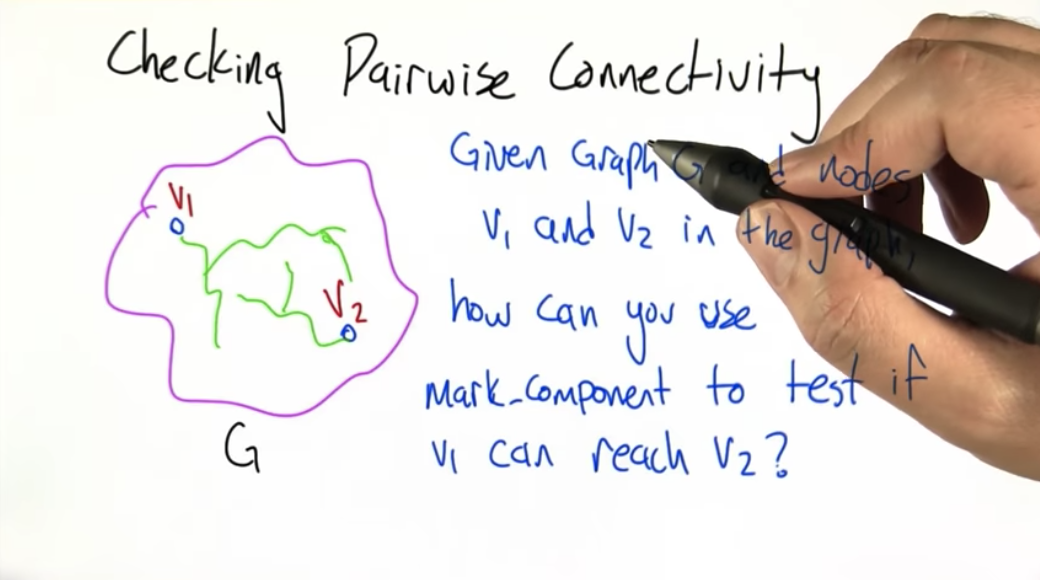 Checking Pairwise Connectivity
Given Graph G and nodes
V1 and V2 in the graph,
how can you use
mark_component to test if
V1 can reach V2?
V1
V2
G